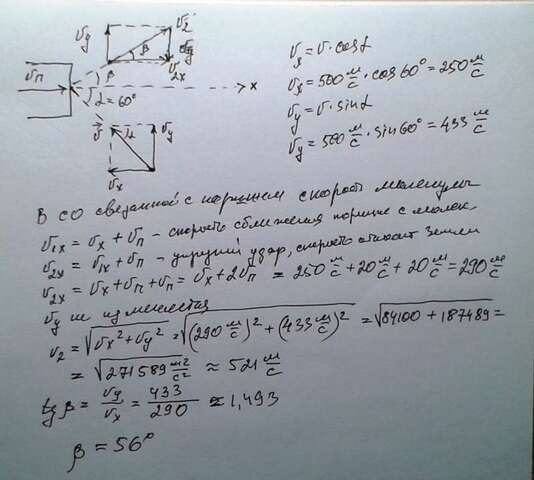 vy v2 vy
β β v2x
vп x
α = 60°
v⃗ α vy
vx
vx = v · cosα
vx = 500 м/с · cos 60° = 250 м/с
vy = v · sinα
vy = 500 м/с · sin 60° = 433 м/с
В СО связанной с поршнем скорость молекулы
v1x = vx + vп – скорость сближения поршня с молек.
v2x = v1x + vп – упругий удар, скорость относит Земли
v2x = vx + vп + vп = vx + 2vп = 250 м/с + 20 м/с + 20 м/с = 290 м/с
vy не изменяется
v2 = √vx² + vy² = √(290 м/с)² + (433 м/с)² = √84100 + 187489 =
= √271589 м²/с² ≈ 521 м/с
tg β = vy/vx = 433/290 ≈ 1,493
β = 56°